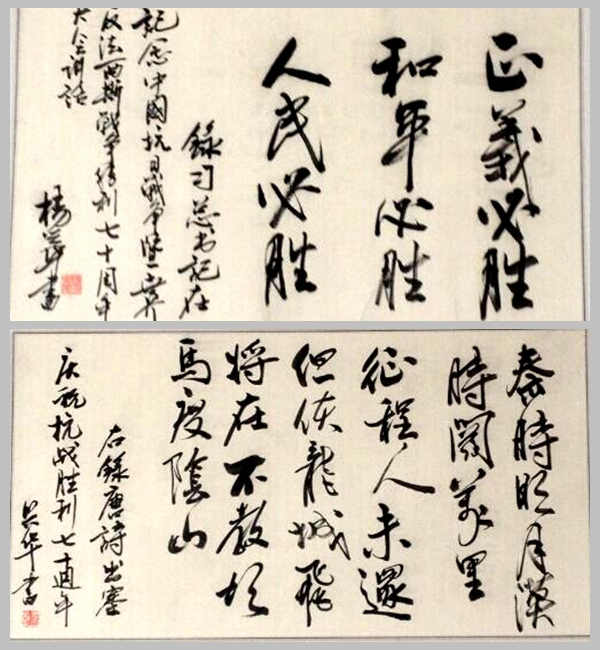 正義必胜
和平必胜
人民必胜
録习总书记在
記念中國抗日战争暨世界
反法西斯战争勝利七十周年
大会讲话
秦時明月漢
時関萬里
征程人未還
但使龍城飛
将在不教胡
馬度陰山
右錄唐詩出塞
庆祝抗战胜利七十週年
吴华書